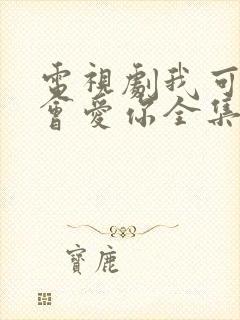 電視劇我可
會愛你全集
寶鹿